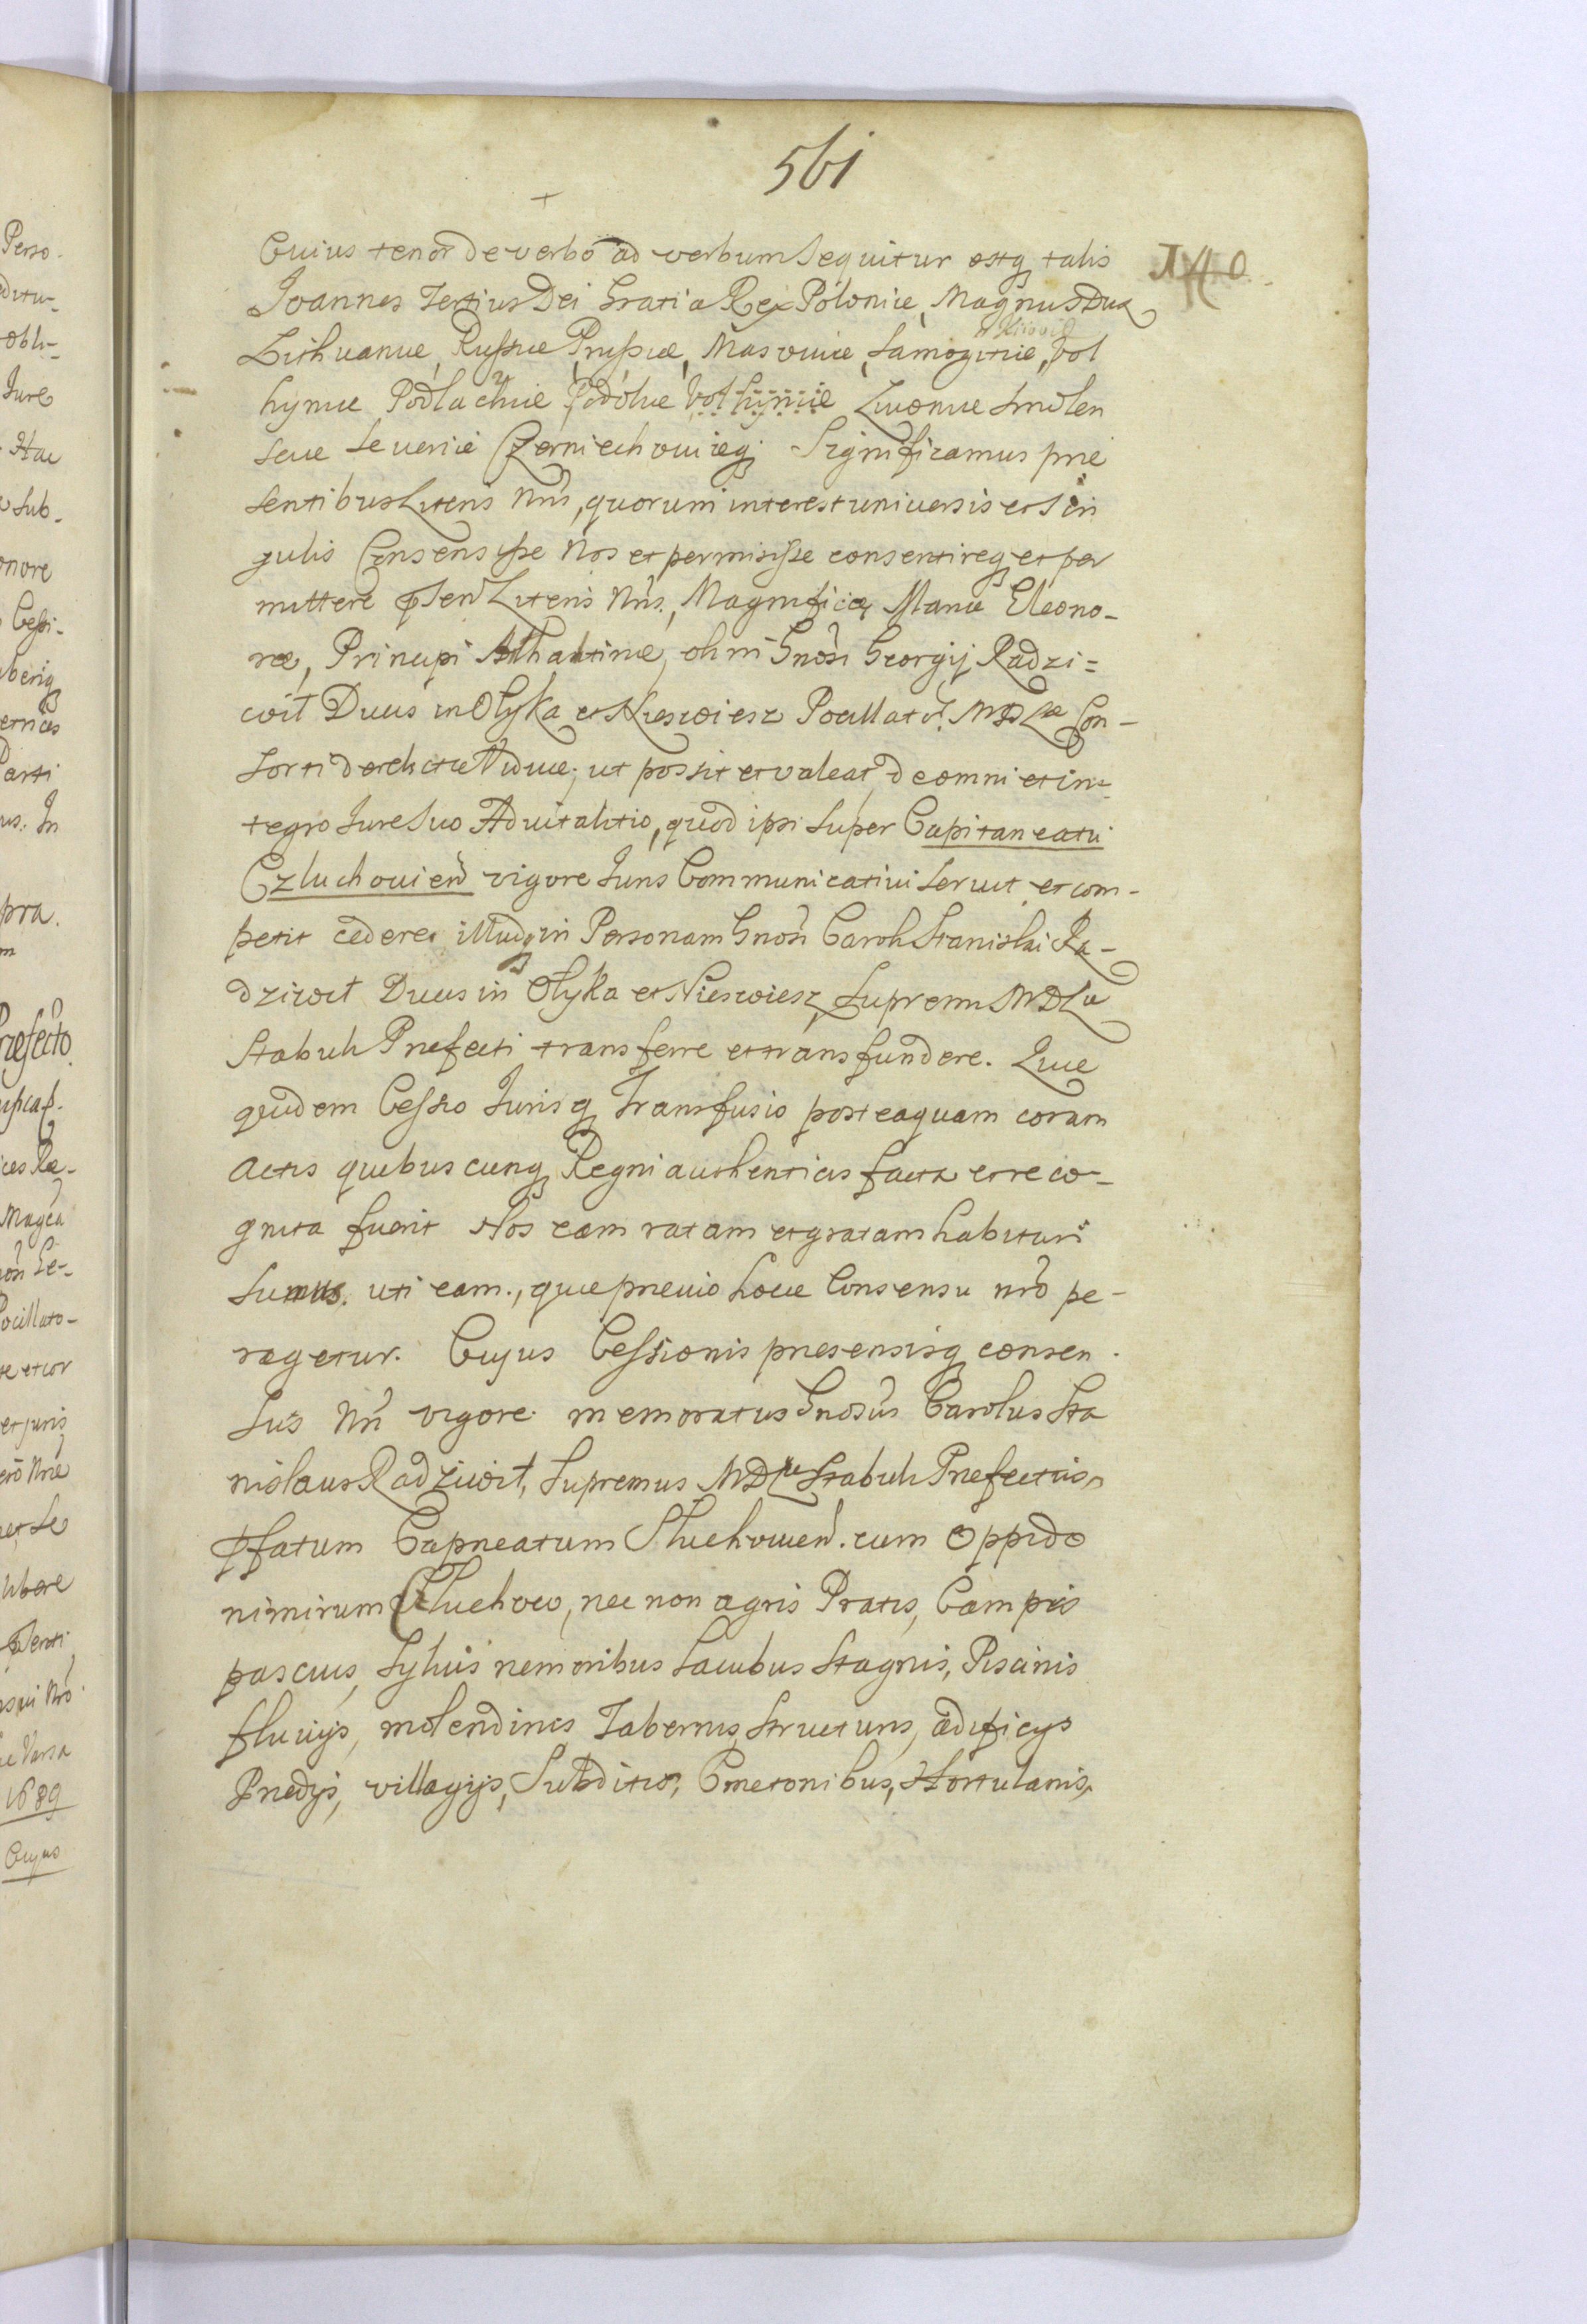 561
Cuius tenor de verbo ad verbum sequitur estq talis
Joannes Tertius Dei Gratia Rex Poloniæ, Magnus Dux
Lithuaniæ, Russiæ Prussiæ, Masouiæ, Samogitiæ, Kiiouiæ Vol
hyniæ Podlachiæ Podoliæ Volhyniæ Liuoniæ Smolen
sciæ Seueriæ Czerniechouiæq. Significamus præ
sentibus Literis Nris, quorum interest uniuersis et Sin
gulis Consensisse Nos et permisisse consentireq et per
mittere pnsen Literis Nris, Magnificæ Mariæ Eleono-
ræ, Principi Anhaltinæ, olim Gnosi Georgij Radzi=
wił Ducis in Ołyka et Nieswiesz Pocillator. MDLæ Con-
sorti derelictæ Viduæ, ut possit et valeat de omni et in-
tegro Jure Suo Aduitalitio, quod ipsi super Capitaneatu
Czluchouien vigore Juris Communicatiui seruit et com-
petit cedere, illudq in Personam Gnosi Caroli Stanislai Ra-
dziwił Ducis in Ołyka et Nieswiesz, Supremi MDLæ
Stabuli Præfecti transferre et transfundere. Quæ
quidem Cessio Jurisq Transfusio posteaquam coram
Actis quibuscunq Regni authenticis facta et reco-
gnita fuerit Nos eam ratam et gratam habituri
Sumus. uti eam, quæ præuio hocce Consensu nro pe-
ragetur. Cujus Cessionis præsensisq consen
sus Nri vigore memoratus Gnosus Carolus Sta
nislaus Radziwił, Supremus MDLæ Stabuli Præfectus,
pfatum Capneatum Słuchouien. cum Oppido
nimirum Człuchow, nec non agris Pratis, Campis
pascuis, Syluis nemoribus Lacubus Stagnis, Piscinis
fluuijs, molendinis Tabernis, Structuris, ædificijs
Prædijs, villagijs, Subditis, Cmetonibus, Hortulanis,
Perso-
obli-
Jure
Sub-
Cessi-
pra.
Pocillato-
et juris
et Se
1689
Cujus